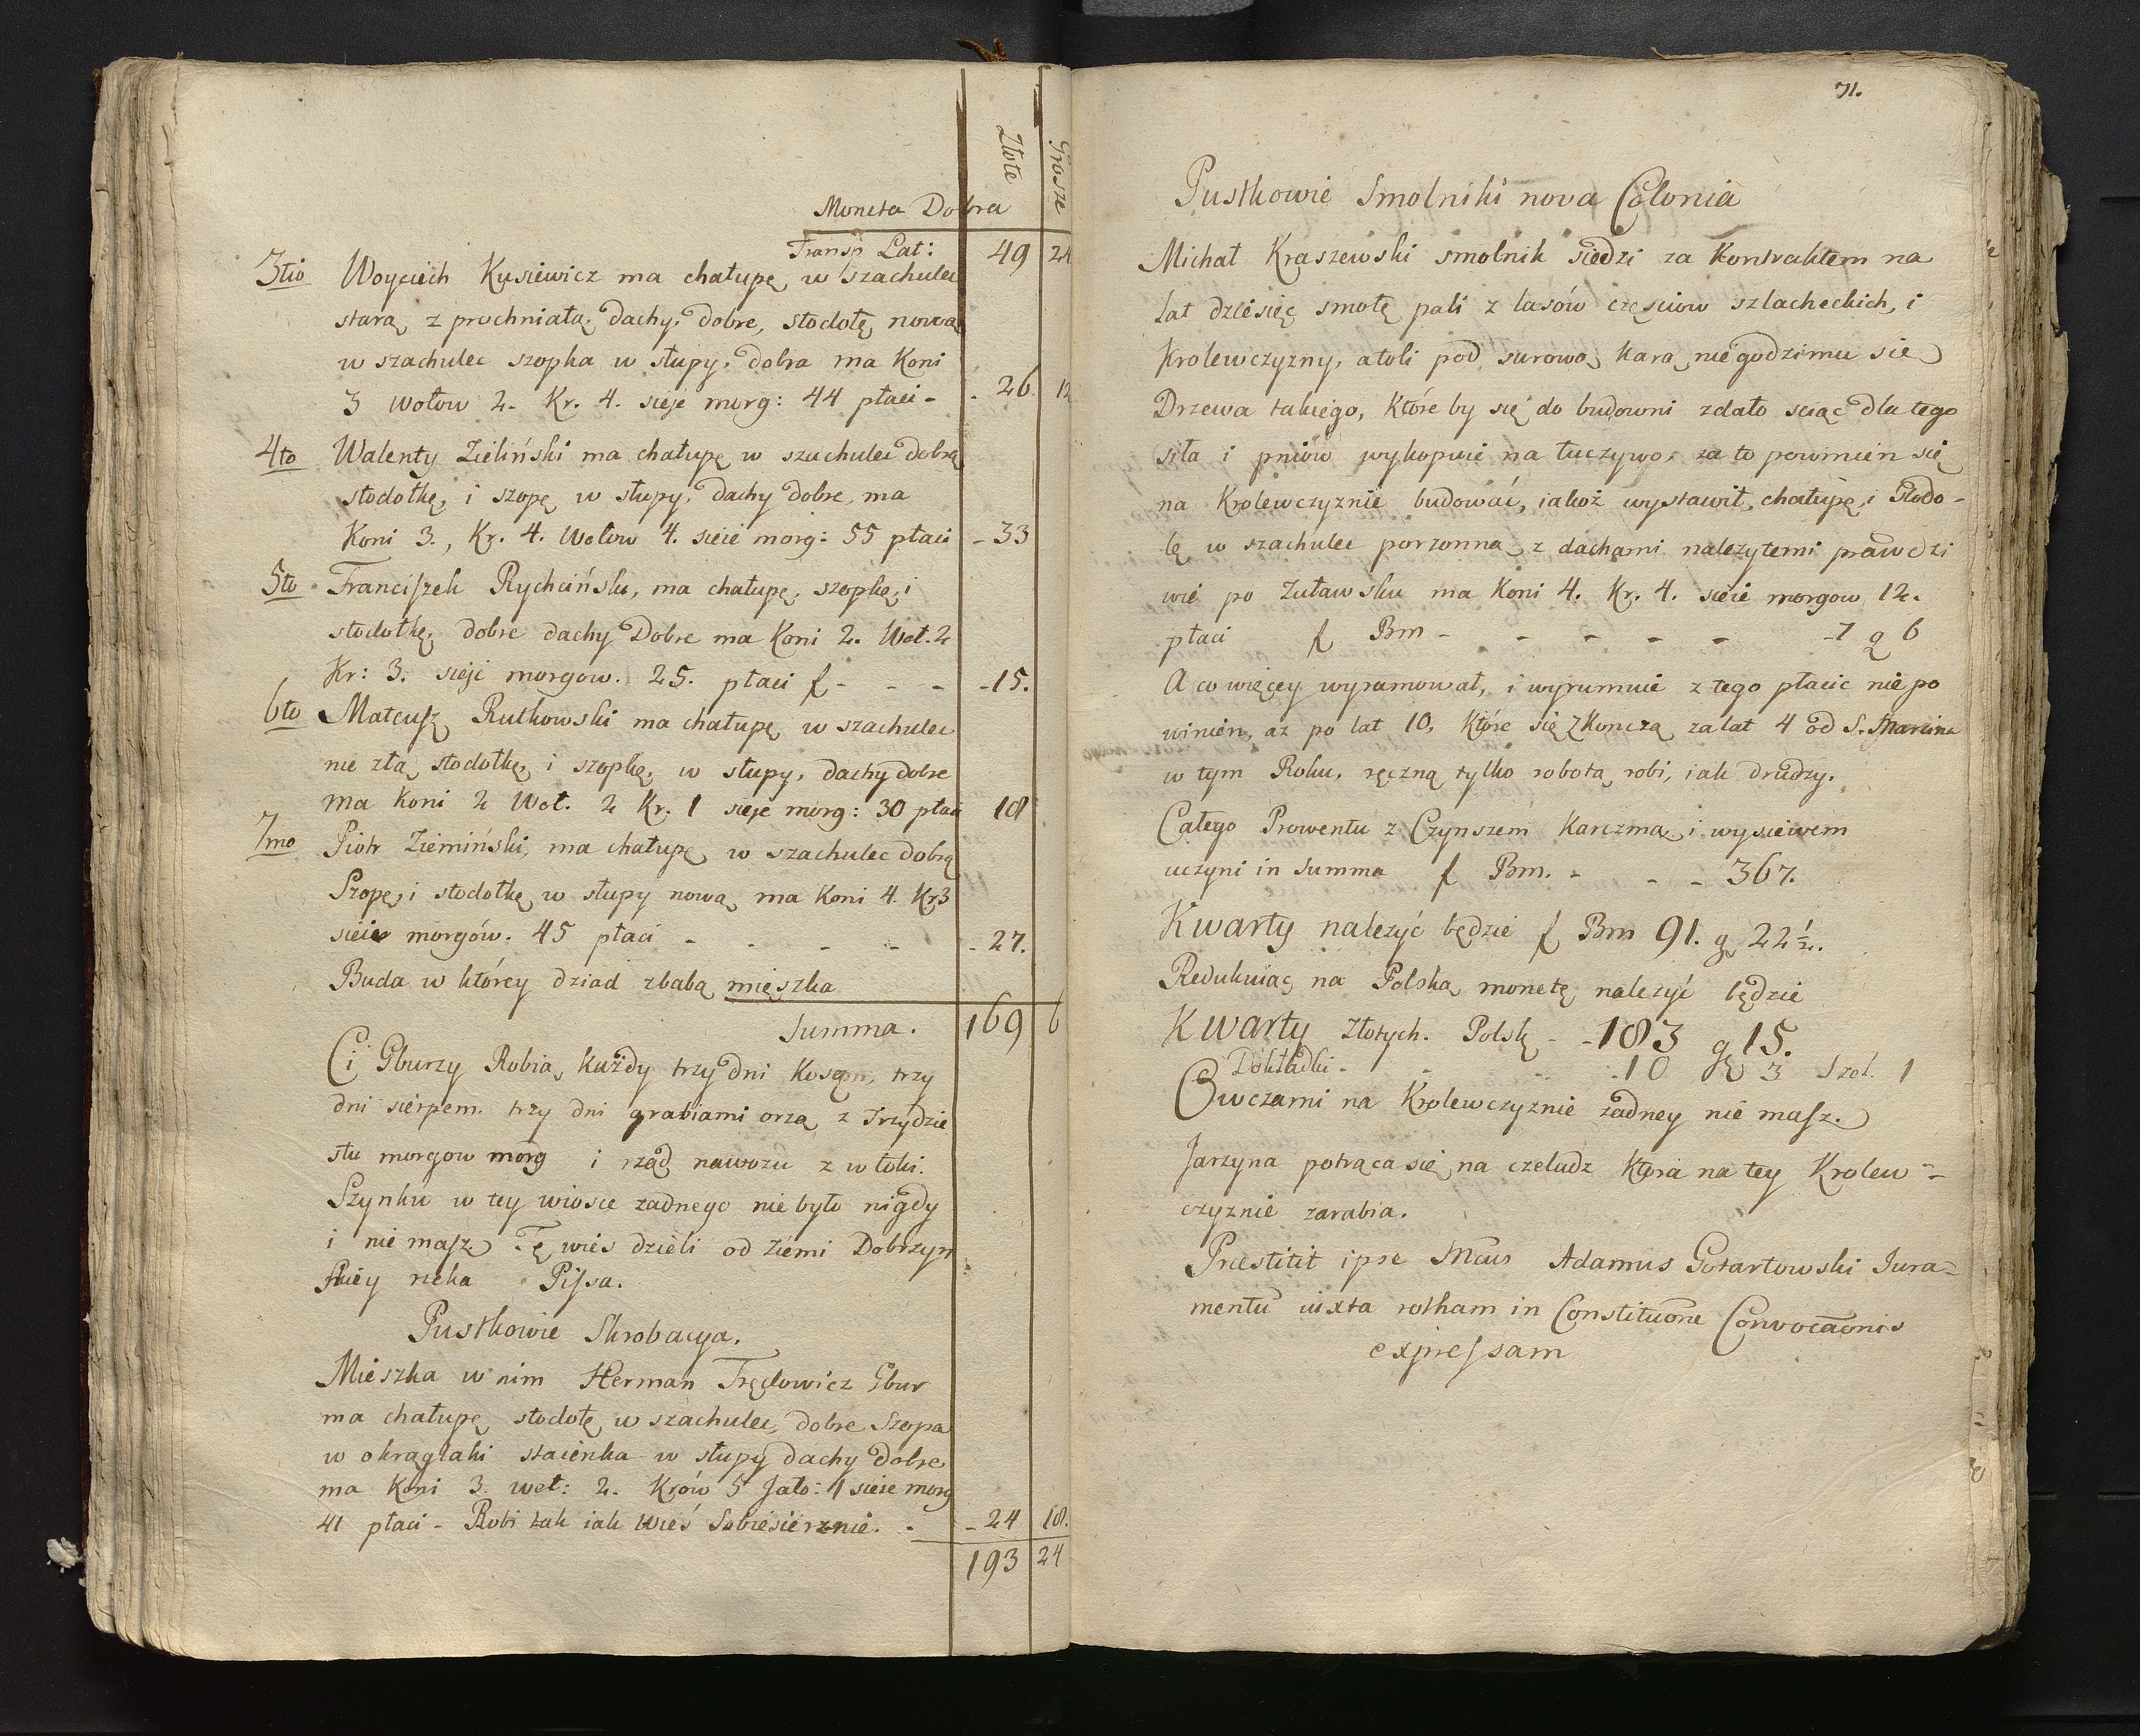 Złote Grosze
Moneta Dobra
Transp Lat: 49 24
3tio Woyciech Kusiewicz ma chałupę w szachulec
starą z prochniałą, dachy dobre, stodołę nową
w szachulec szopka w słupy, dobra ma Koni
3 wołow 2. Kr. 4. sieje morg: 44 płaci - - 26 12
4to Walenty Zieliński ma chałupę w szachulec dobrą
stodołkę, i szopę w słupy, dachy dobre, ma
Koni 3., Kr. 4. Wołow 4. sieie morg: 55 płaci - 33
5to Franciszek Rychciński, ma chałupę, szopkę, i
stodołkę, dobre dachy Dobre ma Koni 2. Woł. 2
Kr: 3. sieje morgow. 25. płaci f - - - - 15.
6to Mateusz Rutkowski ma chałupę w szachulec
nie złą stodołkę, i szopkę, w słupy, dachy dobre
ma koni 2 Woł. 2 Kr. 1 sieje morg: 30 płaci 18
7mo Piotr Ziemiński, ma chałupę w szachulec dobrą
Szopę, i stodołkę w słupy nową ma Koni 4. Kr3
sieie morgów. 45 płaci - - - - - 27.
Buda w którey dziad zbabą mięszka
Summa. 169 6
Ci Gburzy Robią, każdy trzy dni Kosą, trzy
dni sierpem. trzy dni grabiami orzą z Trzydzie
stu morgow morg i rząd nawozu z włoki.
Szynku w tey wiosce zadnego nie było nigdy
i nie masz. Tę wies dzieli od Ziemi Dobrzyn
skiey rzeka Pissa.
Pustkowie Skrobacya.
Mieszka w nim Herman Frędowicz Gbur
ma chałupę stodołę w szachulec, dobre Szopa
w okrąglaki staienka w słupy dachy dobre
ma Kóni 3. woł: 2. Krów 5 Jało: 1 sieie morg
41 płaci - Robi tak iak Wieś Sobiesierznie. - - 24 18.
193 24
71.
Pustkowie Smolniki nova Colonia
Michał Kraszewski smolnik siedzi za Kontraktem na
lat dziesięć smołę pali z lasów częsciow szlacheckich, i
Krolewczyzny, atoli pod surową karą niegodzimu się
Drzewa takiego, któreby się do budowni zdało sciąć dla tego
siła i pniow wykopuie na łuczywo, za to powinien się
na Krolewczyznie budować, iakoż wystawił chałupę, i stodo-
łę w szachulec porzonną z dachami nalezytemi prawdzi
wie po Zuławsku ma koni 4. Kr. 4. sieie morgow 12.
płaci f Bm - - - - - - 7 g 6
A co więcey wyramował, i wyrumuie z tego płacic nie po
winien, az po lat 10, które się zkonczą zalat 4 od S. Marcina
w tym Roku, ręczną tylko robotą robi, iak drudzy.
Całego Prowentu z Czynszem Karczmą i wysiewem
uczyni in Summa f Bm. - - - 367.
Kwarty nalezyć będzie f Bm 91. g 22½.
Redukuiąc na Polską monetę nalezyć będzie
Kwarty Złotych. Polsk - - 183 g 15.
Dokładki - - - 10 g 3 Szel. 1
Owczarni na Krolewczyznie zadney nie masz.
Jarzyna potrąca się na czeladz która na tey Krolew=
czyznie zarabia.
Præstitit ipse Mcus Adamus Gotartowski Jura=
mentu iuxta rotham in Constituōne Convocaōnis
expressam